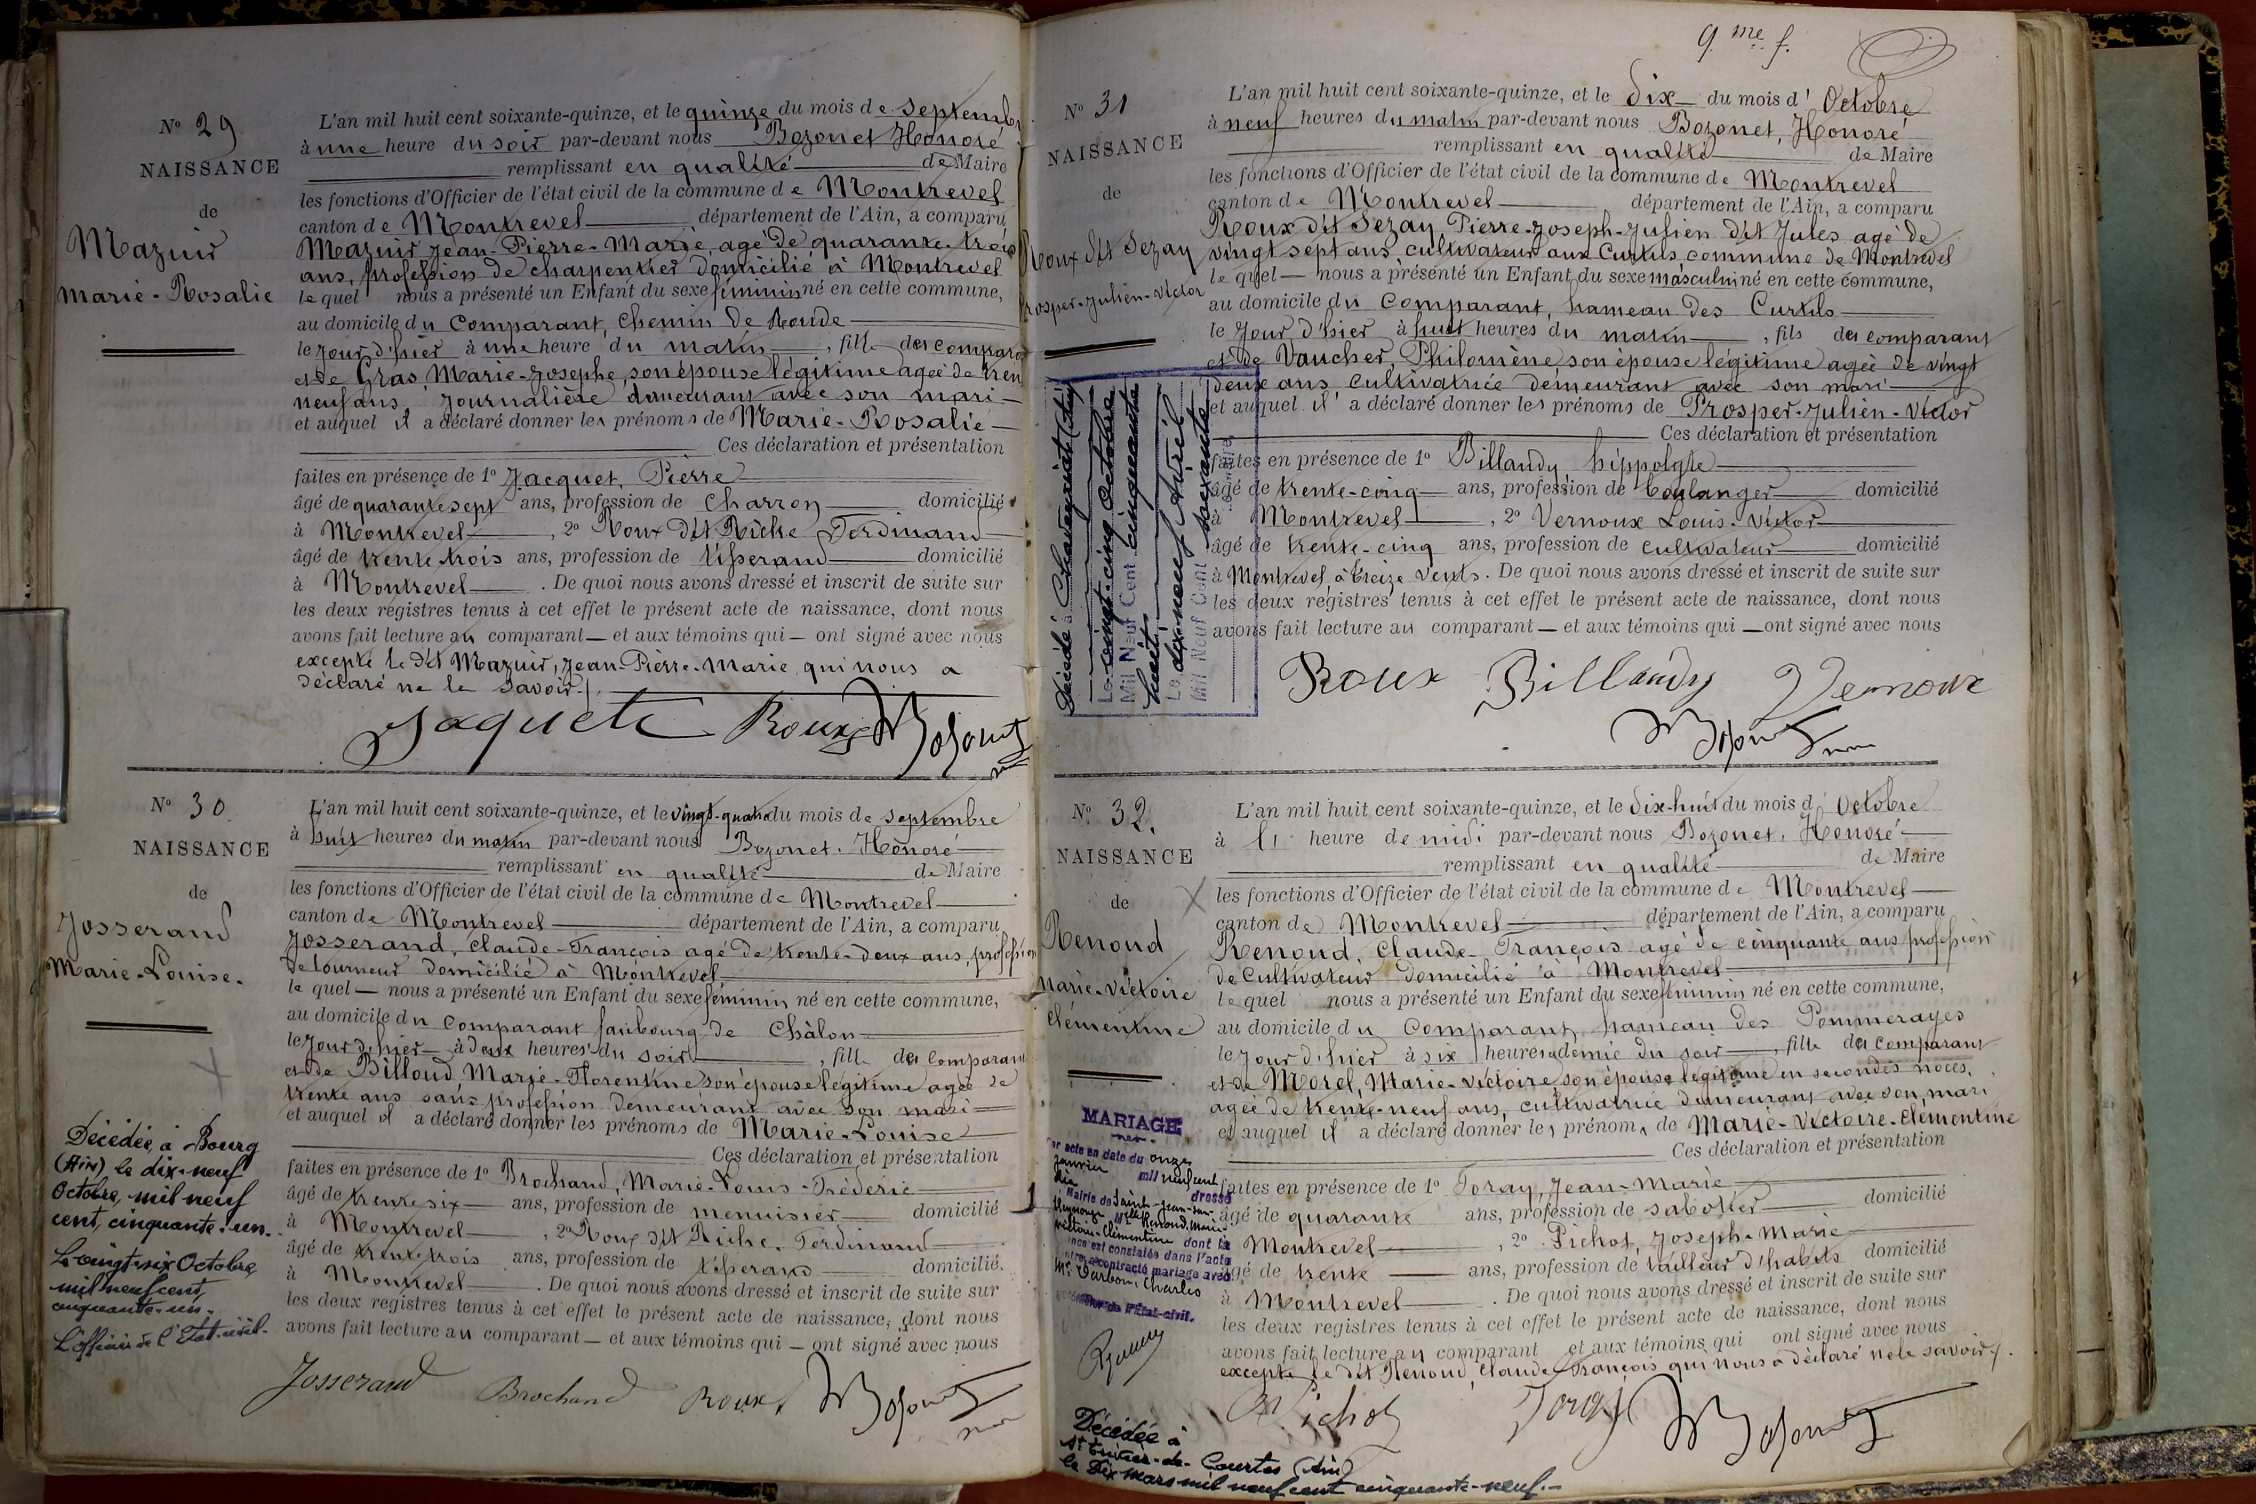 Nº 29
NAISSANCE
de
Mazuir
Marie-Rosalie
L'an mil huit cent soixante-quinze, et le quinze du mois de septembre
à une heure du soir par-devant nous Bozonet Honoré
remplissant en qualité de Maire
les fonctions d'Officier de l'état civil de la commune de Montrevel
canton de Montrevel département de l'Ain, a comparu
Mazuir Jean-Pierre-Marie, agé de quarante-trois
ans, profession de charpentier domicilié à Montrevel
lequel nous a présenté un Enfant du sexe féminin né en cette commune,
au domicile du Comparant, Chemin de Ronde
le jour d'hier à une heure du matin, fille des comparant
et de Gras, Marie-Josephe, son épouse légitime agée de tren
neuf ans Journalière demeurant avec son mari
et auquel il a déclaré donner les prénoms de Marie-Rosalie
Ces déclaration et présentation
faites en présence de 1º Jacquet, Pierre
âgé de quarante sept ans, profession de Charron domicilié
à Montrevel, 2º Roux dit Riche Ferdinand
âgé de trente-trois ans, profession de tisserand domicilié
à Montrevel. De quoi nous avons dressé et inscrit de suite sur
les deux registres tenus à cet effet le présent acte de naissance, dont nous
avons fait lecture au comparant et aux témoins qui ont signé avec nous
excepté le dit Mazuir, Jean-Pierre-Marie qui nous a
déclaré ne le savoir.
Jaquet Roux Bozonet
Nº 30
NAISSANCE
de
Josserand
Marie-Louise.
L'an mil huit cent soixante-quinze, et le vingt-quatre du mois de septembre
à huit heures du matin par-devant nous Bozonet, Honoré
remplissant en qualité de Maire
les fonctions d'Officier de l'état civil de la commune de Montrevel
canton de Montrevel département de l'Ain, a comparu
Josserand, Claude-François agé de trente-deux ans, profession
de tourneur domicilié à Montrevel
lequel nous a présenté un Enfant du sexe féminin né en cette commune,
au domicile du Comparant faubourg de Châlon
le jour d'hier à deux heures du soir, fille des Comparant
et de Billoud, Marie-Florentine son épouse légitime agée de
trente ans sans profession demeurant avec son mari
et auquel il a déclaré donner les prénoms de Marie-Louise
Ces déclaration et présentation
faites en présence de 1º Brochand, Marie-Louis-Fréderic
âgé de trente six ans, profession de menuisier domicilié
à Montrevel, 2º Roux dit Riche, Ferdinand
âgé de trente-trois ans, profession de tisserand domicilié
à Montrevel. De quoi nous avons dressé et inscrit de suite sur
les deux registres tenus à cet effet le présent acte de naissance, dont nous
avons fait lecture au comparant et aux témoins qui ont signé avec nous
Josserand Brochand Roux Bozonet
Décédée à Bourg
(Ain) le dix-neuf
Octobre, mil neuf
cent, cinquante-un.
Le vingt-six Octobre
mil neuf cent
cinquante-un.
L'Officier de l'Etat-civil.
9 me f.
Nº 31
NAISSANCE
de
Roux dit Sezay
Prosper-Julien-Victor
L'an mil huit cent soixante-quinze, et le dix du mois d'Octobre
à neuf heures du matin par-devant nous Bozonet, Honoré
remplissant en qualité de Maire
les fonctions d'Officier de l'état civil de la commune de Montrevel
canton de Montrevel département de l'Ain, a comparu
Roux dit Sezay, Pierre-Joseph-Julien dit Jules agé de
vingt sept ans, cultivateur aux Curtils, commune de Montrevel
lequel nous a présenté un Enfant du sexe masculin né en cette commune,
au domicile du Comparant, hameau des Curtils
le jour d'hier à huit heures du matin, fils des comparant
et de Vaucher, Philomène, son épouse légitime agée de vingt
deux ans Cultivatrice demeurant avec son mari
et auquel il a déclaré donner les prénoms de Prosper-Julien-Victor
Ces déclaration et présentation
faites en présence de 1º Billaudy hippolyte
âgé de trente-cinq ans, profession de boulanger domicilié
à Montrevel, 2º Vernoux Louis-Victor
âgé de trente-cinq ans, profession de cultivateur domicilié
à Montrevel, à treize Vents. De quoi nous avons dressé et inscrit de suite sur
les deux registres tenus à cet effet le présent acte de naissance, dont nous
avons fait lecture au comparant et aux témoins qui ont signé avec nous
Roux Billaudy Vernoux
Bozonet
Décédé à
Le vingt-cinq Octobre
Mil Neuf Cent cinquante
huit.
Le dix-neuf Avril
Mil Neuf Cent soixante
Nº 32.
NAISSANCE
de
Renoud
Marie-Victoire
Clémentine
L'an mil huit cent soixante-quinze, et le dix-huit du mois d'Octobre
à l' heure de midi par-devant nous Bozonet, Honoré
remplissant en qualité de Maire
les fonctions d'Officier de l'état civil de la commune de Montrevel
canton de Montrevel département de l'Ain, a comparu
Renoud, Claude-François agé de cinquante ans profession
de Cultivateur domicilié à Montrevel
lequel nous a présenté un Enfant du sexe féminin né en cette commune,
au domicile du Comparant, hameau des Pommerayes
le jour d'hier à six heures & demie du soir, fille des comparant
et de Morel, Marie-Victoire, son épouse légitime en secondes noces,
agée de trente-neuf ans, cultivatrice demeurant avec son mari
et auquel il a déclaré donner les prénoms de Marie-Victoire-Clémentine
Ces déclaration et présentation
faites en présence de 1º Foray, Jean-Marie
âgé de quarante ans, profession de sabotier domicilié
Montrevel, 2º Pichot, Joseph-Marie
âgé de trente ans, profession de tailleur d'habits domicilié
à Montrevel. De quoi nous avons dressé et inscrit de suite sur
les deux registres tenus à cet effet le présent acte de naissance, dont nous
avons fait lecture au comparant et aux témoins qui ont signé avec nous
excepté le dit Renoud, Claude-François qui nous a déclaré ne le savoir.
Pichot Foray Bozonet
MARIAGE
par acte en date du onze
Janvier mil neuf cent
dix dressé
Mairie de Saint-Jean-sur-
Reyssouze Melle Renoud, Marie
Victoire-Clémentine dont la
naissance est constatée dans l'acte
contre a contracté mariage avec
Mr Darbon, Charles
de l'État-civil.
Décédée à
St Trivier-de-Courtes (Ain)
le Dix Mars mil neuf cent cinquante-neuf.